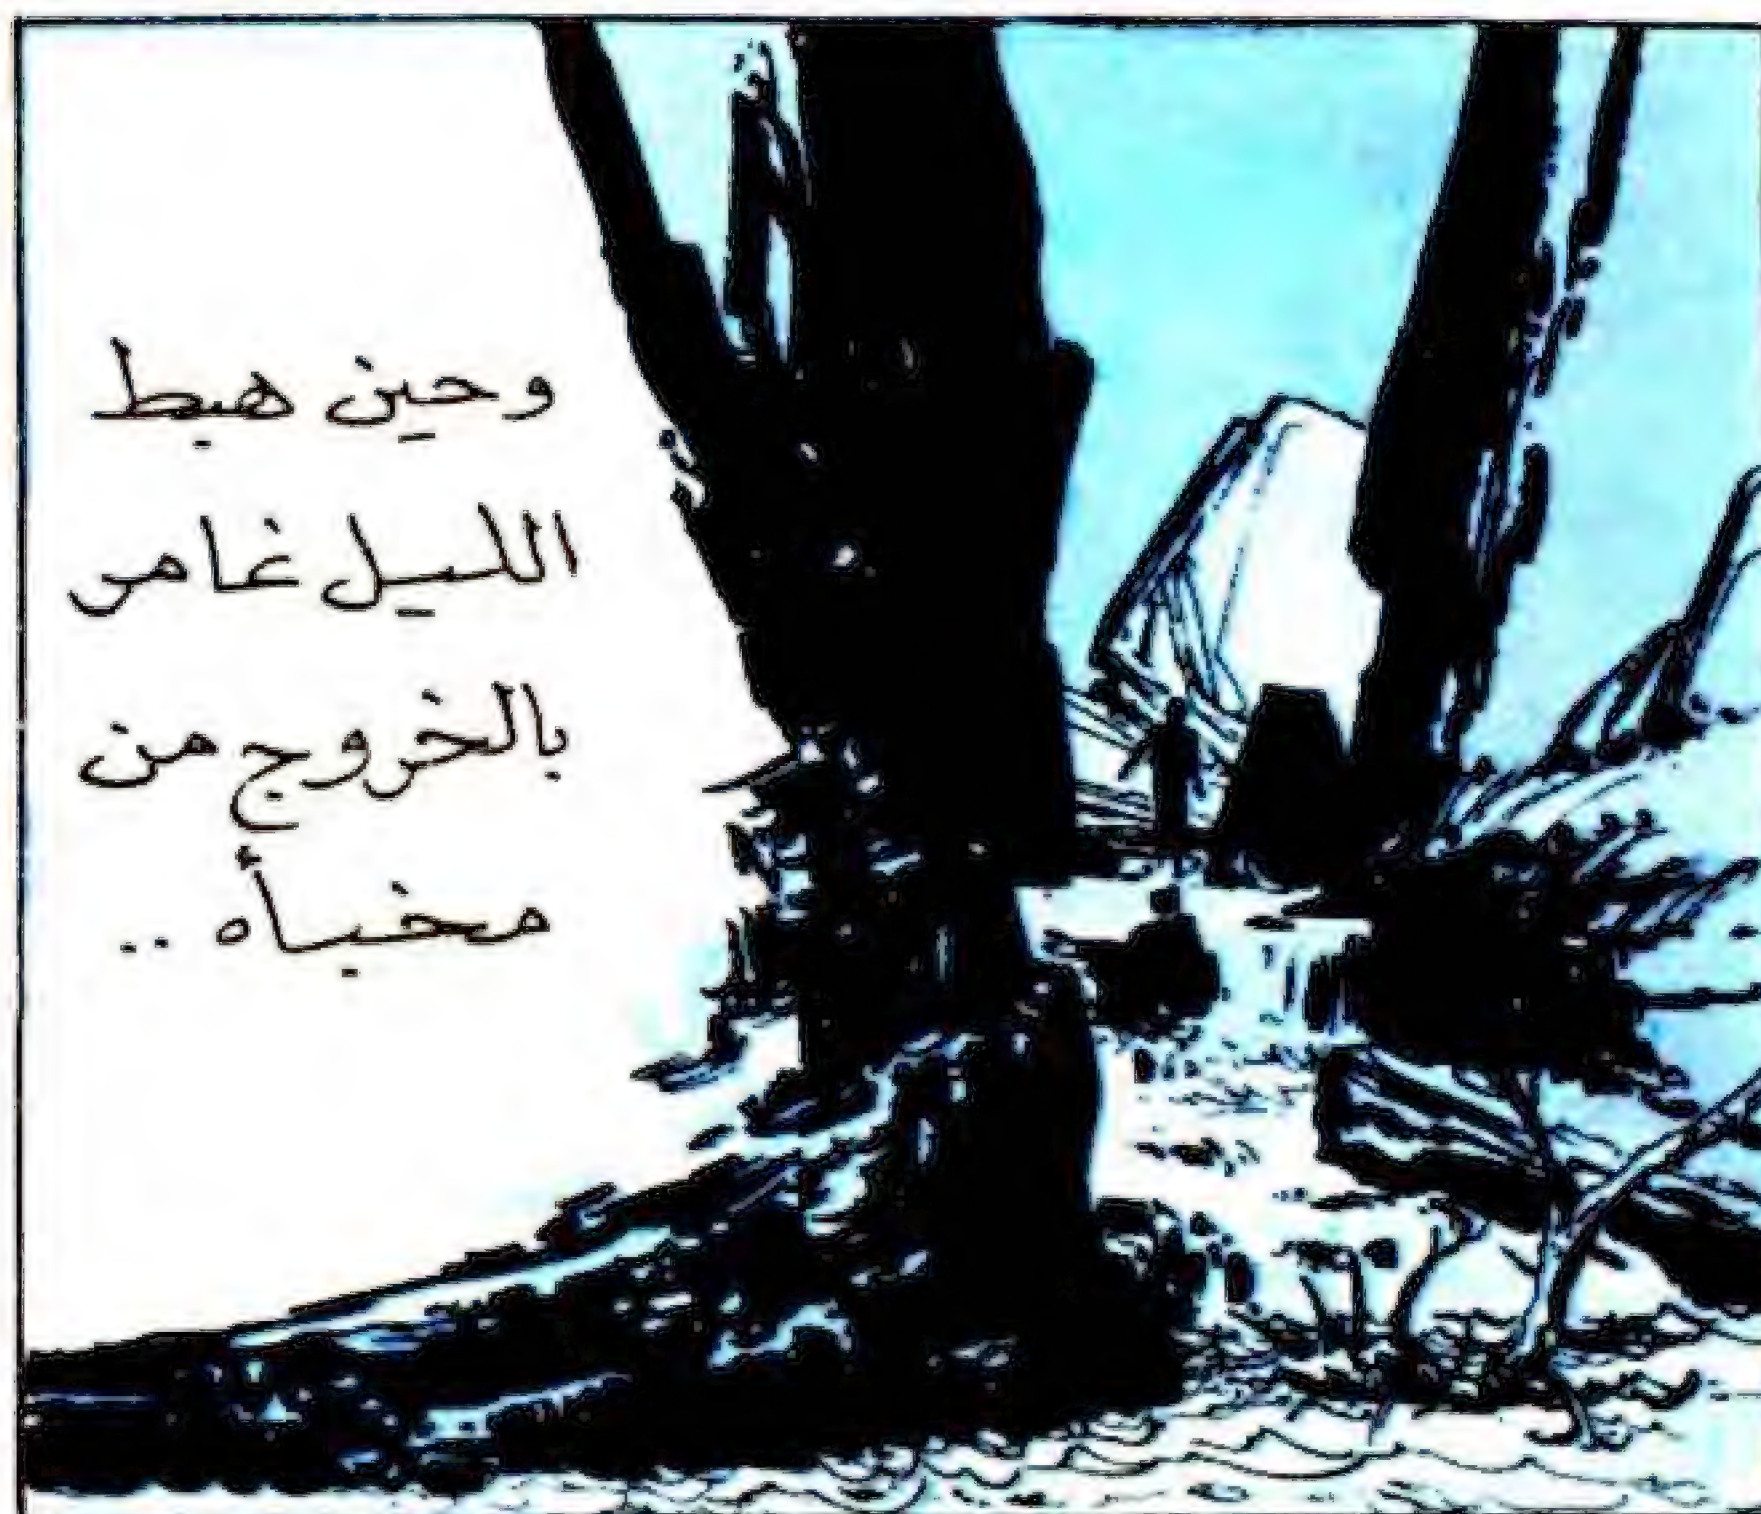 وحين هبط
الليل غامر
بالخروج من
مخبأه ..